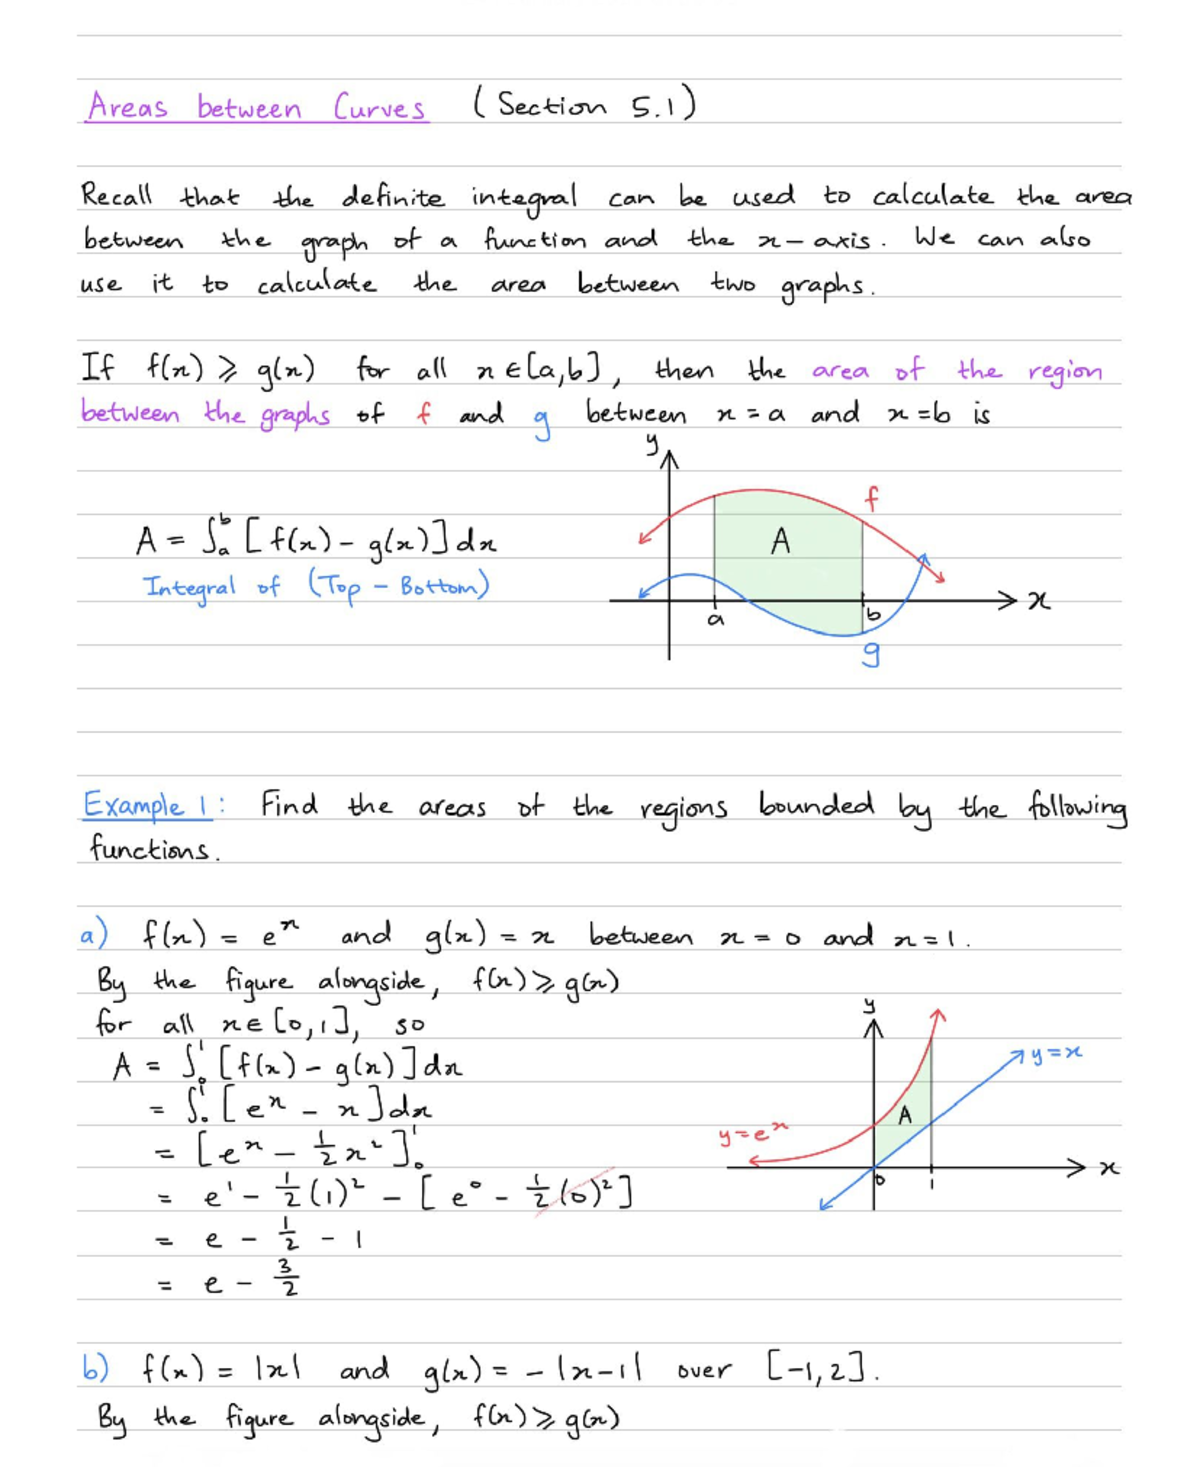 Areas between Curves (Section 5.1)
Recall that the definite integral can be used to calculate the area
between the graph of a function and the x-axis. We can also
use it to calculate the area between two graphs.
If f(x) ⩾ g(x) for all x ∈ [a,b], then the area of the region
between the graphs of f and g between x = a and x = b is
y
f
A = ∫ₐᵇ [f(x) - g(x)] dx
A
Integral of (Top - Bottom)
x
a
b
g
Example 1: Find the areas of the regions bounded by the following
functions.
a) f(x) = eˣ and g(x) = x between x = 0 and x = 1.
By the figure alongside, f(x) ⩾ g(x)
for all x ∈ [0,1], so
A = ∫₀¹ [f(x) - g(x)] dx
= ∫₀¹ [eˣ - x] dx
= [eˣ - ½x²]₀¹
= e¹ - ½(1)² - [e⁰ - ½(0)²]
= e - ½ - 1
= e - 3/2
y
y=x
A
y=eˣ
x
0
1
b) f(x) = |x| and g(x) = -|x-1| over [-1,2].
By the figure alongside, f(x) ⩾ g(x)